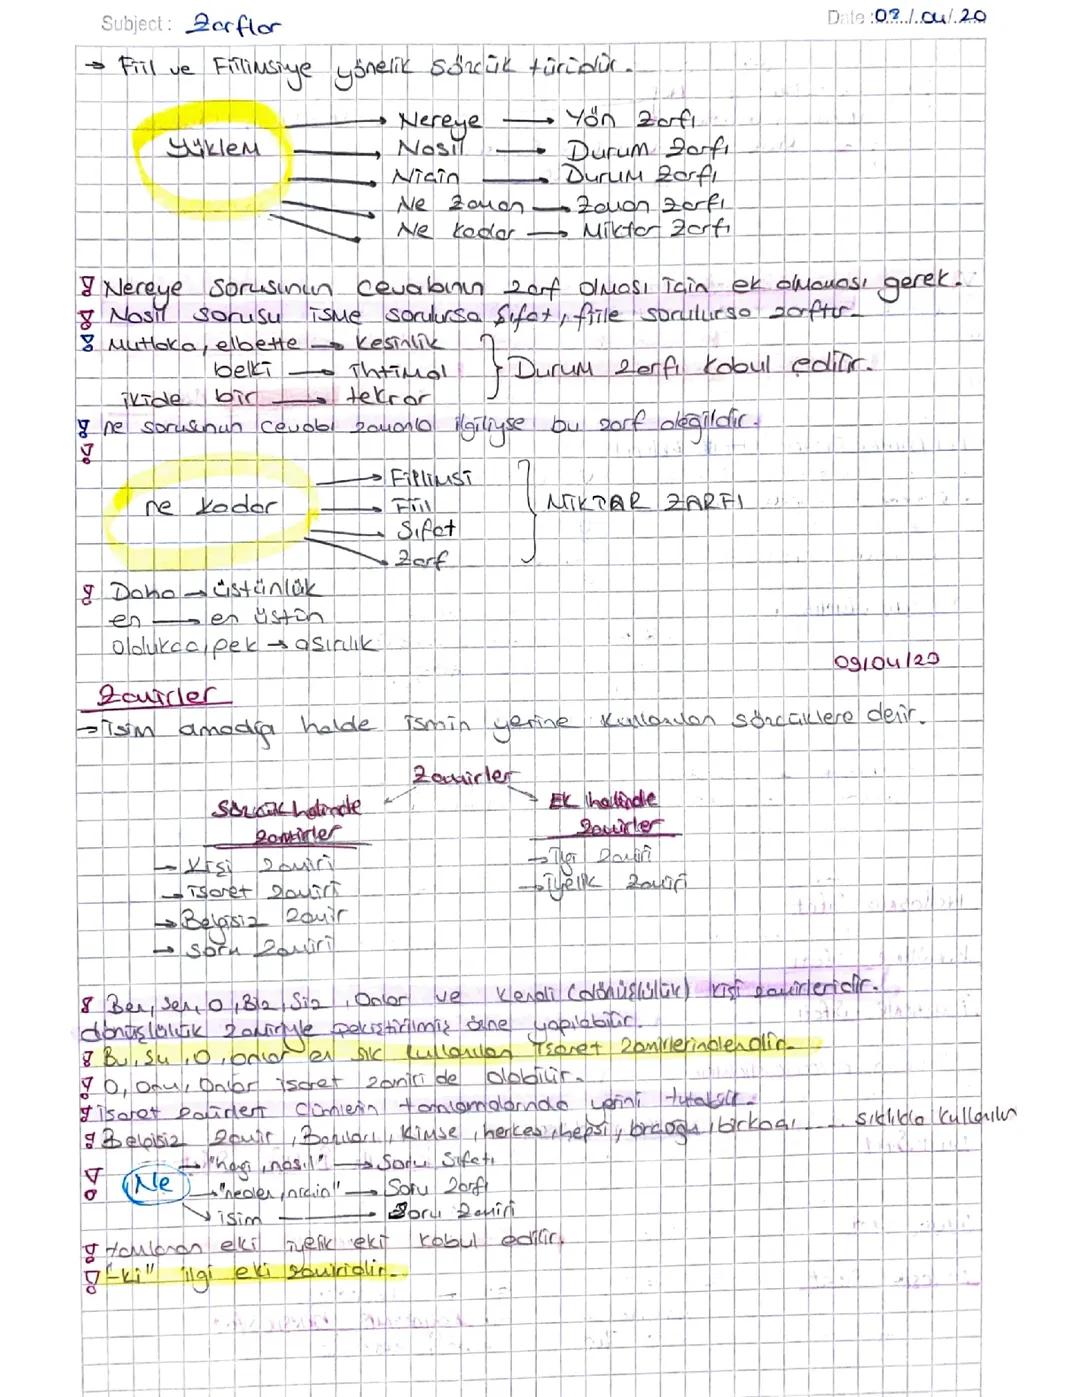 Subject: Zarflar
Date: 08/04/20
→ Fiil ve Fiilimsiye yönelik sözcük türüdür.
Yüklem
→ Nereye → Yön Zarfı
→ Nasıl → Durum Zarfı
→ Niçin → Durum Zarfı
→ Ne zaman → Zaman zarfı
→ Ne kadar → Miktar Zarfı
Nereye sorusunun cevabının zarf olması için ek olmaması gerek.
Nasıl sorusu isme sorulursa Sıfat, fiile sorulursa zarftır.
Mutlaka, elbette → kesinlik
belki → ihtimal } Durum Zarfı kabul edilir.
ikide bir → tekrar
ne sorusunun cevabı zamanla ilgiliyse bu zarf değildir.
→ Fiilimsi
ne kadar → Fiil } MİKTAR ZARFI
→ Sıfat
→ Zarf
Daha → üstünlük
en → en üstün
oldukça, pek → aşırılık
09/04/20
Zamirler
→ İsim olmadığı halde ismin yerine kullanılan sözcüklere denir.
Zamirler
Sözcük halinde zamirler
→ Kişi zamiri
→ işaret zamiri
→ Belgisiz zamir
→ Soru zamiri
Ek halinde zamirler
→ İlgi zamiri
→ İyelik zamiri
Ben, Sen, O, Biz, Siz, Onlar ve kendi (dönüşlülük) kişi zamirleridir.
dönüşlülük zamiriyle pekiştirilmiş özne yapılabilir.
Bu, şu, O, onlar en sık kullanılan işaret zamirlerindendir.
O, Onu, Onlar işaret zamiri de olabilir.
işaret zamirleri cümlenin tamlamalarında yerini tutabilir.
Belgisiz zamir, Bazıları, kimse, herkes, hepsi, birçoğu, birkaçı ... sıklıkla kullanılır
Ne
→ "hangi, nasıl" → Soru Sıfatı
→ "neden, niçin" → Soru Zarfı
→ isim → Soru Zamiri
tamlanan eki iyelik eki kabul edilir.
"-ki" ilgi eki zamiridir.